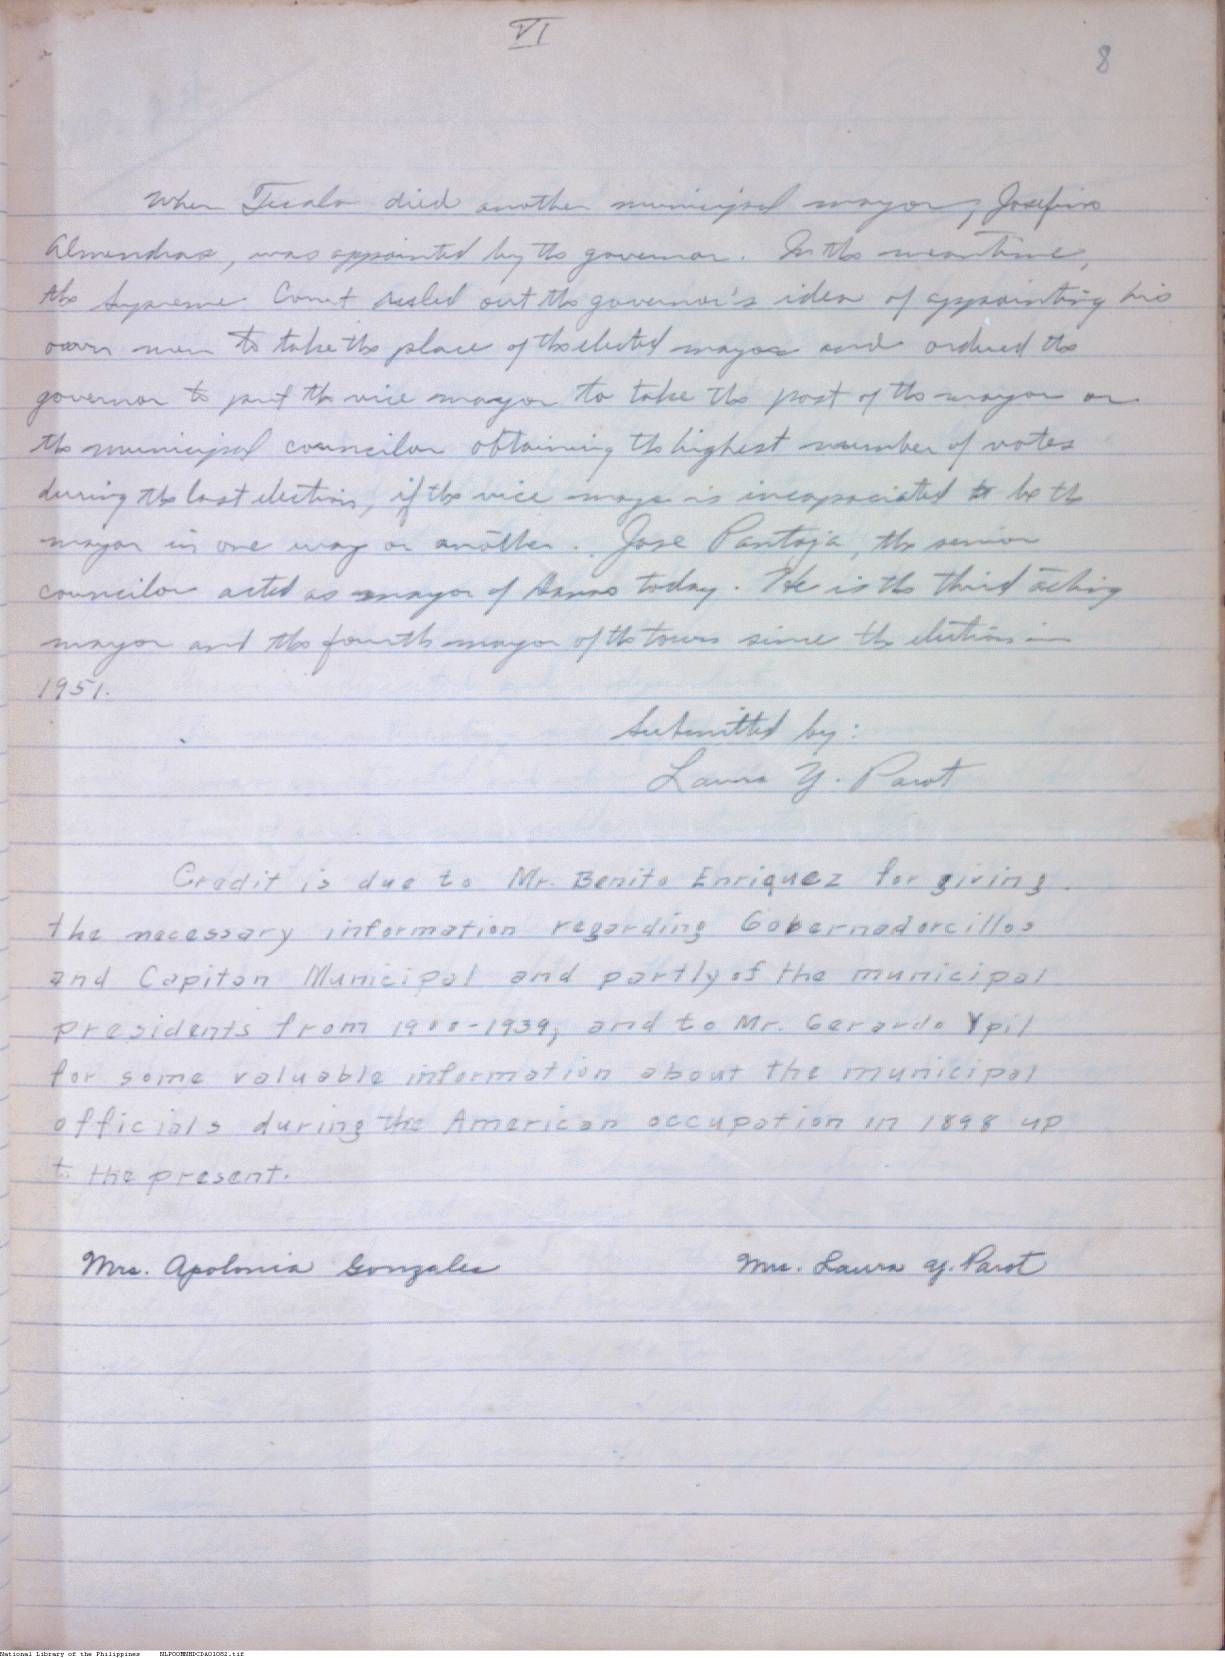 VI
8
When Tecala died another municipal mayor, Josefino
Almendras, was appointed by the governor. In the meantime,
the Supreme Court ruled out the governor's idea of appointing his
own men to take the place of the elected mayor and ordered the
governor to put the vice mayor to take the post of the mayor or
the municipal councilor obtaining the highest number of votes
during the last election, if the vice mayor is incapaciated to be the
mayor in one way or another. Jose Pantoja, the senior
councilor acted as mayor of Danao today. He is the third acting
mayor and the fourth mayor of the town since the election in
1951.
Submitted by:
Laura Y. Parot
Credit is due to Mr. Benito Enriquez for giving
the necessary information regarding Gobernadorcillos
and Capitan Municipal and partly of the municipal
presidents from 1900-1939, and to Mr. Gerardo Ypil
for some valuable information about the municipal
officials during the American occupation in 1898 up
to the present.
Mrs. Apolonia Gonzales Mrs. Laura Y. Parot
National Library of the Philippines NLPOOMNHDCDA01082.tif